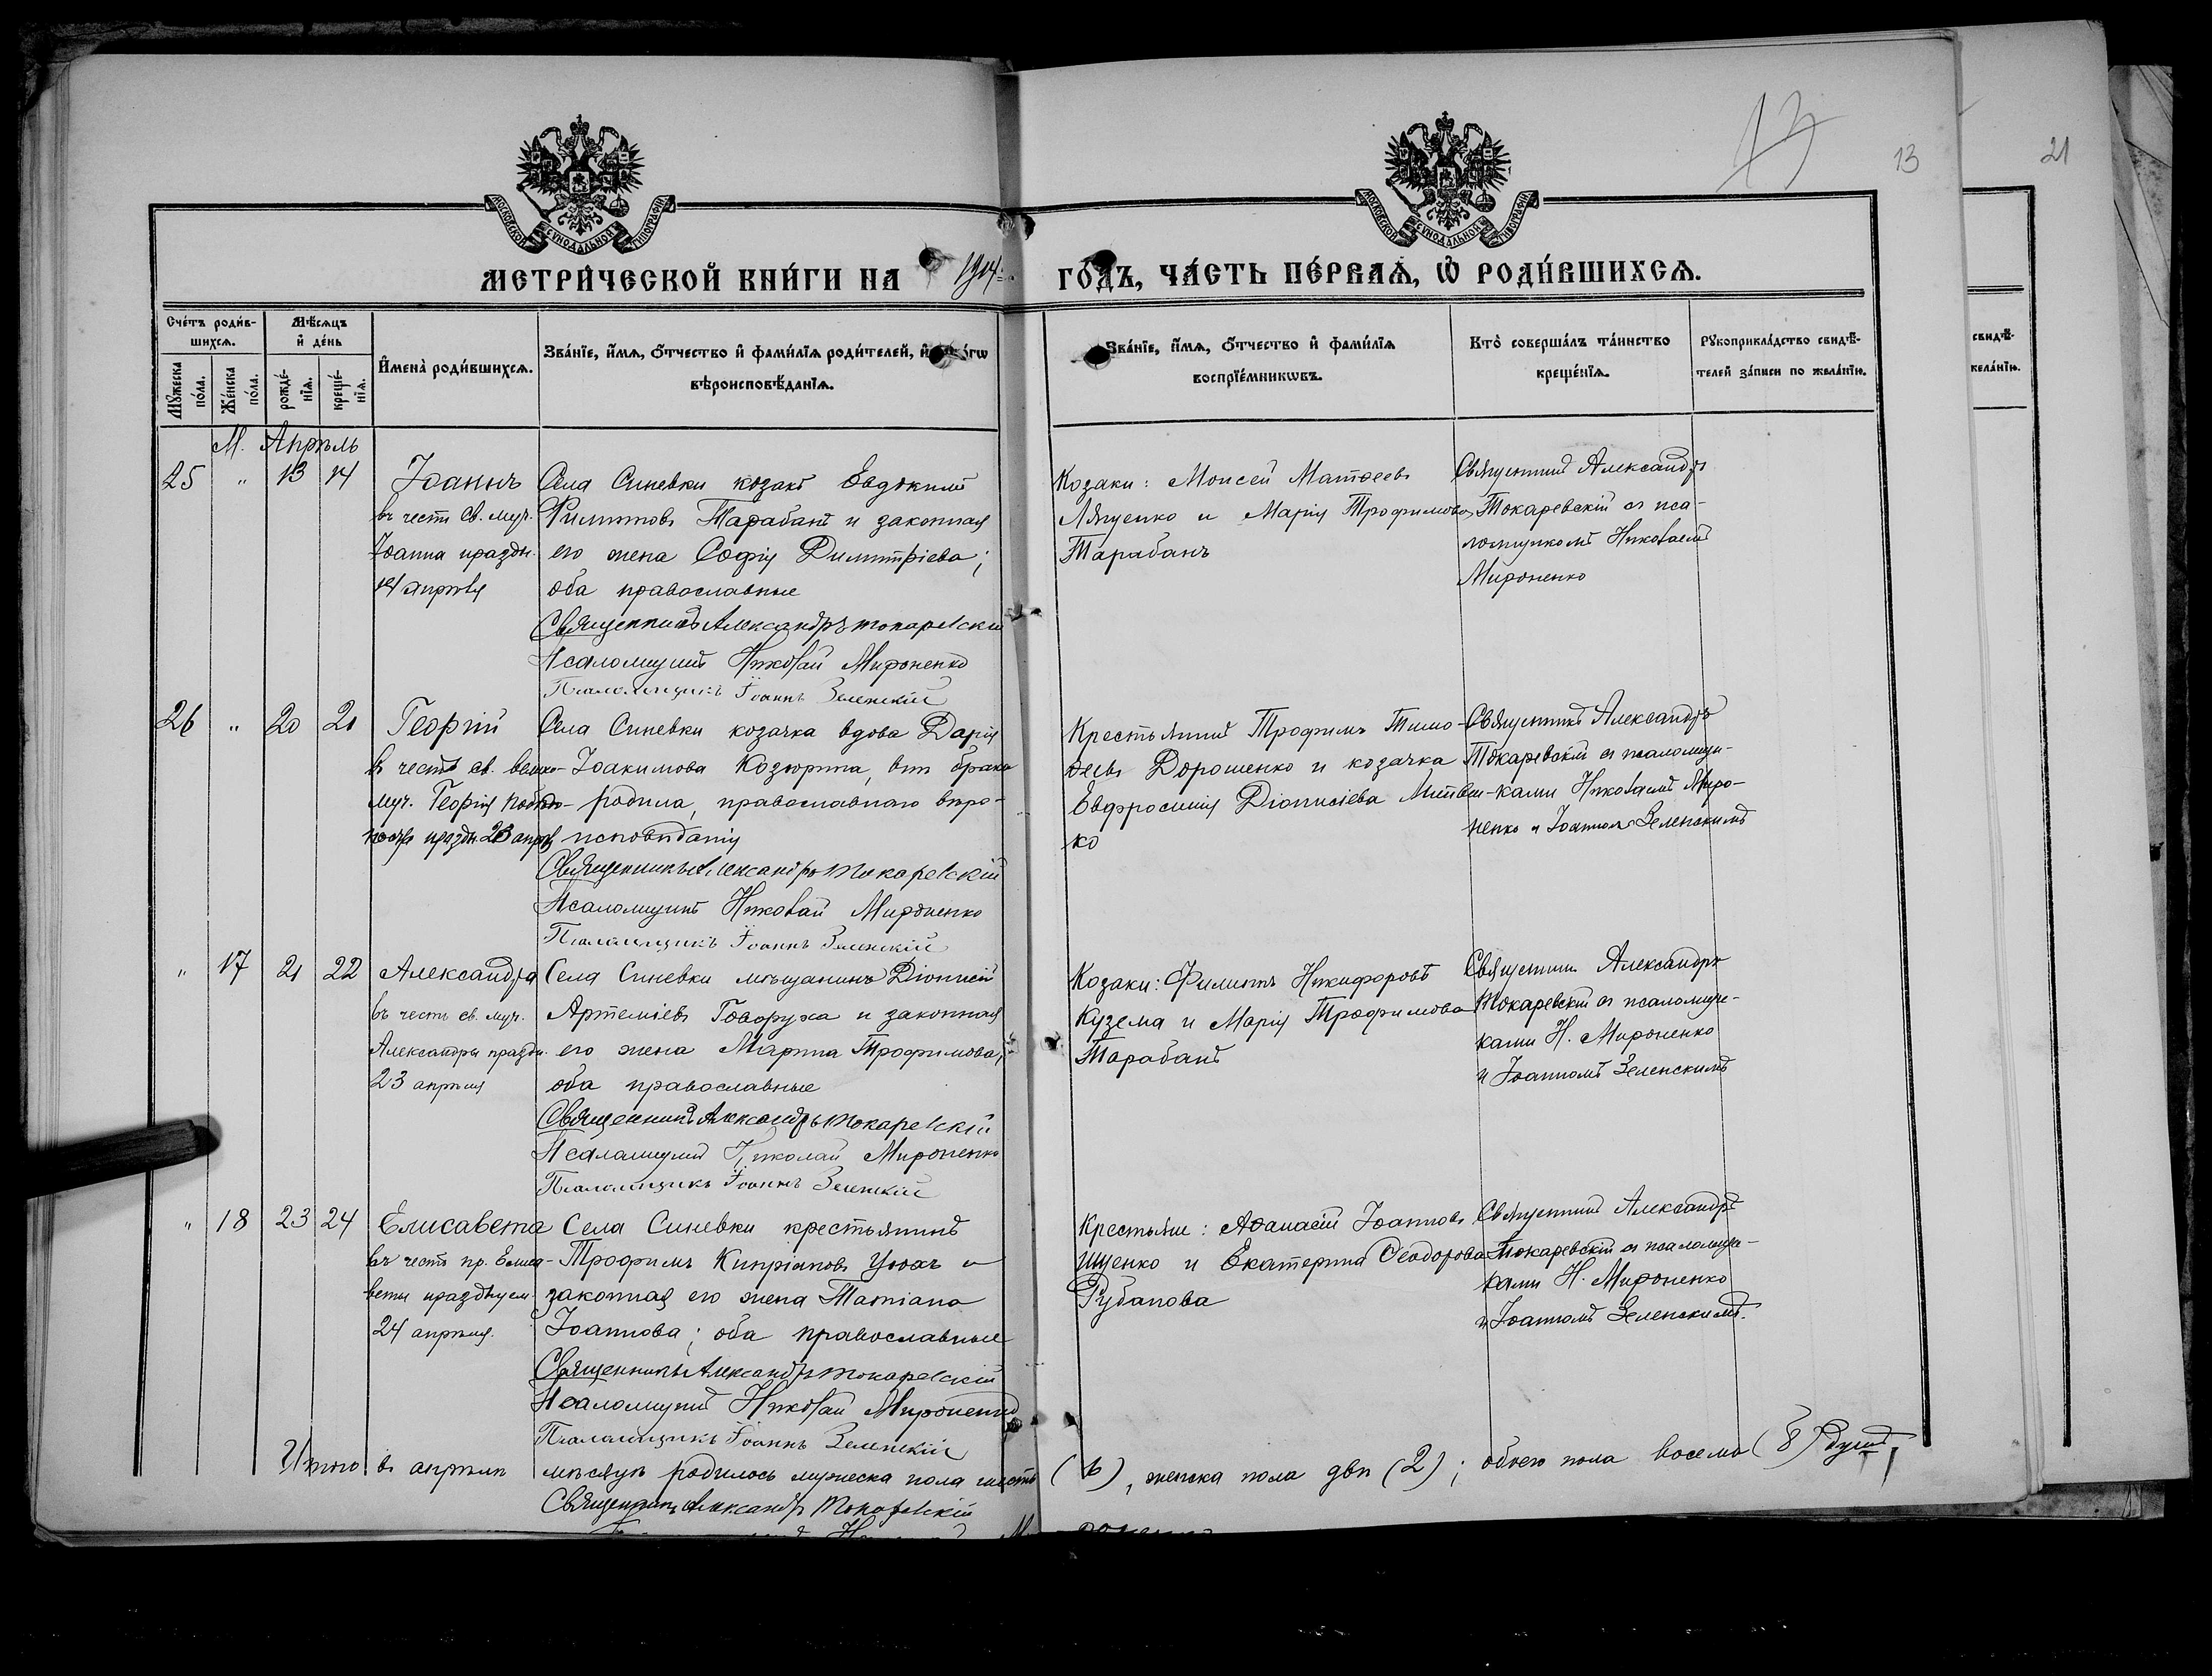 13
13
21
МОСКОВСКОЙ СѴНОДАЛЬНОЙ ТИПОГРАФІИ
МОСКОВСКОЙ СѴНОДАЛЬНОЙ ТИПОГРАФІИ
МЕТРИ́ЧЕСКОЙ КНИ́ГИ НА 1904
ГО́ДЪ, ЧА́СТЬ ПЕ́РВАѦ, Ѡ҆ РОДИ́ВШИХСѦ.
Сче́тъ роди́в-
шихсѧ.
Мꙋ́жеска по́ла.
Же́нска по́ла.
Мѣ́сѧцъ
и҆ де́нь
рожде́-нїѧ.
креще́-нїѧ.
И҆мена̀ роди́вшихсѧ.
Зва́нїе, и҆́мѧ, ѻ҆́тчество и҆ фами́лїѧ роди́телей, и҆
вѣроисповѣ́данїѧ.
Зва́нїе, и҆́мѧ, ѻ҆́тчество и҆ фами́лїѧ
воспрїе́мникѡвъ.
Кто̀ соверша́лъ та́инство
креще́нїѧ.
Рꙋкоприкла́дство свидѣ́-
телей за́писи по жела́нїю.
свидѣ́-
жела́нїю.
М. Апрѣль
25 " 13 14
Іоаннъ
въ честь Св. муч.
Іоанна праздн.
14 апрѣля
Села Синевки козакъ Евдокимъ
Филипповъ Тарабанъ и законная
его жена Софія Димитріева;
оба православные
Священникъ Александръ Токаревскій
Псаломщикъ Николай Мироненко
Псаломщикъ Іоаннъ Зеленскій
Козаки: Моисей Матѳеевъ
Ляшенко и Марія Трофимова
Тарабанъ
Священникъ Александръ
Токаревскій съ пса-
ломщикомъ Николаемъ
Мироненко
26 " 20 21
Георгій
въ честь св. велико-
муч. Георгія Побѣдо-
носца праздн. 23 апрѣля
Села Синевки козачка вдова Дарія
Іоакимова Козюрина, внѣ брака
родила, православнаго вѣро-
исповѣданія
Священникъ Александръ Токаревскій
Псаломщикъ Николай Мироненко
Псаломщикъ Іоаннъ Зеленскій
Крестьянинъ Трофимъ Тимо-
ѳеевъ Дорошенко и козачка
Евфросинія Діонисіева Литвин-
ко
Священникъ Александръ
Токаревскій съ псаломщи-
ками Николаемъ Миро-
ненко и Іоанномъ Зеленскимъ
" 17 21 22
Александра
въ честь св. муч.
Александры праздн.
23 апрѣля
Села Синевки мѣщанинъ Діонисій
Артеміевъ Говоруха и законная
его жена Марина Трофимова;
оба православные
Священникъ Александръ Токаревскій
Псаломщикъ Николай Мироненко
Псаломщикъ Іоаннъ Зеленскій
Козаки: Филиппъ Никифоровъ
Кузема и Марія Трофимова
Тарабанъ
Священникъ Александръ
Токаревскій съ псаломщи-
ками Н. Мироненко
и Іоанномъ Зеленскимъ
" 18 23 24
Елисавета
въ честь пр. Елиса-
веты празднуем.
24 апрѣля.
Села Синевки крестьянинъ
Трофимъ Кипріановъ и
законная его жена Татіана
Іоаннова; оба православные
Священникъ Александръ Токаревскій
Псаломщикъ Николай Мироненко
Псаломщикъ Іоаннъ Зеленскій
Крестьяне: Аѳанасій Іоанновъ
Ищенко и Екатерина Ѳеодорова
Рубанова
Священникъ Александръ
Токаревскій съ псаломщи-
ками Н. Мироненко
и Іоанномъ Зеленскимъ.
Итого въ апрѣлѣ мѣсяцѣ родилось мужеска пола шесть (6), женска пола двѣ (2); обоего пола восемь (8) душъ
Священникъ Александръ Токаревскій